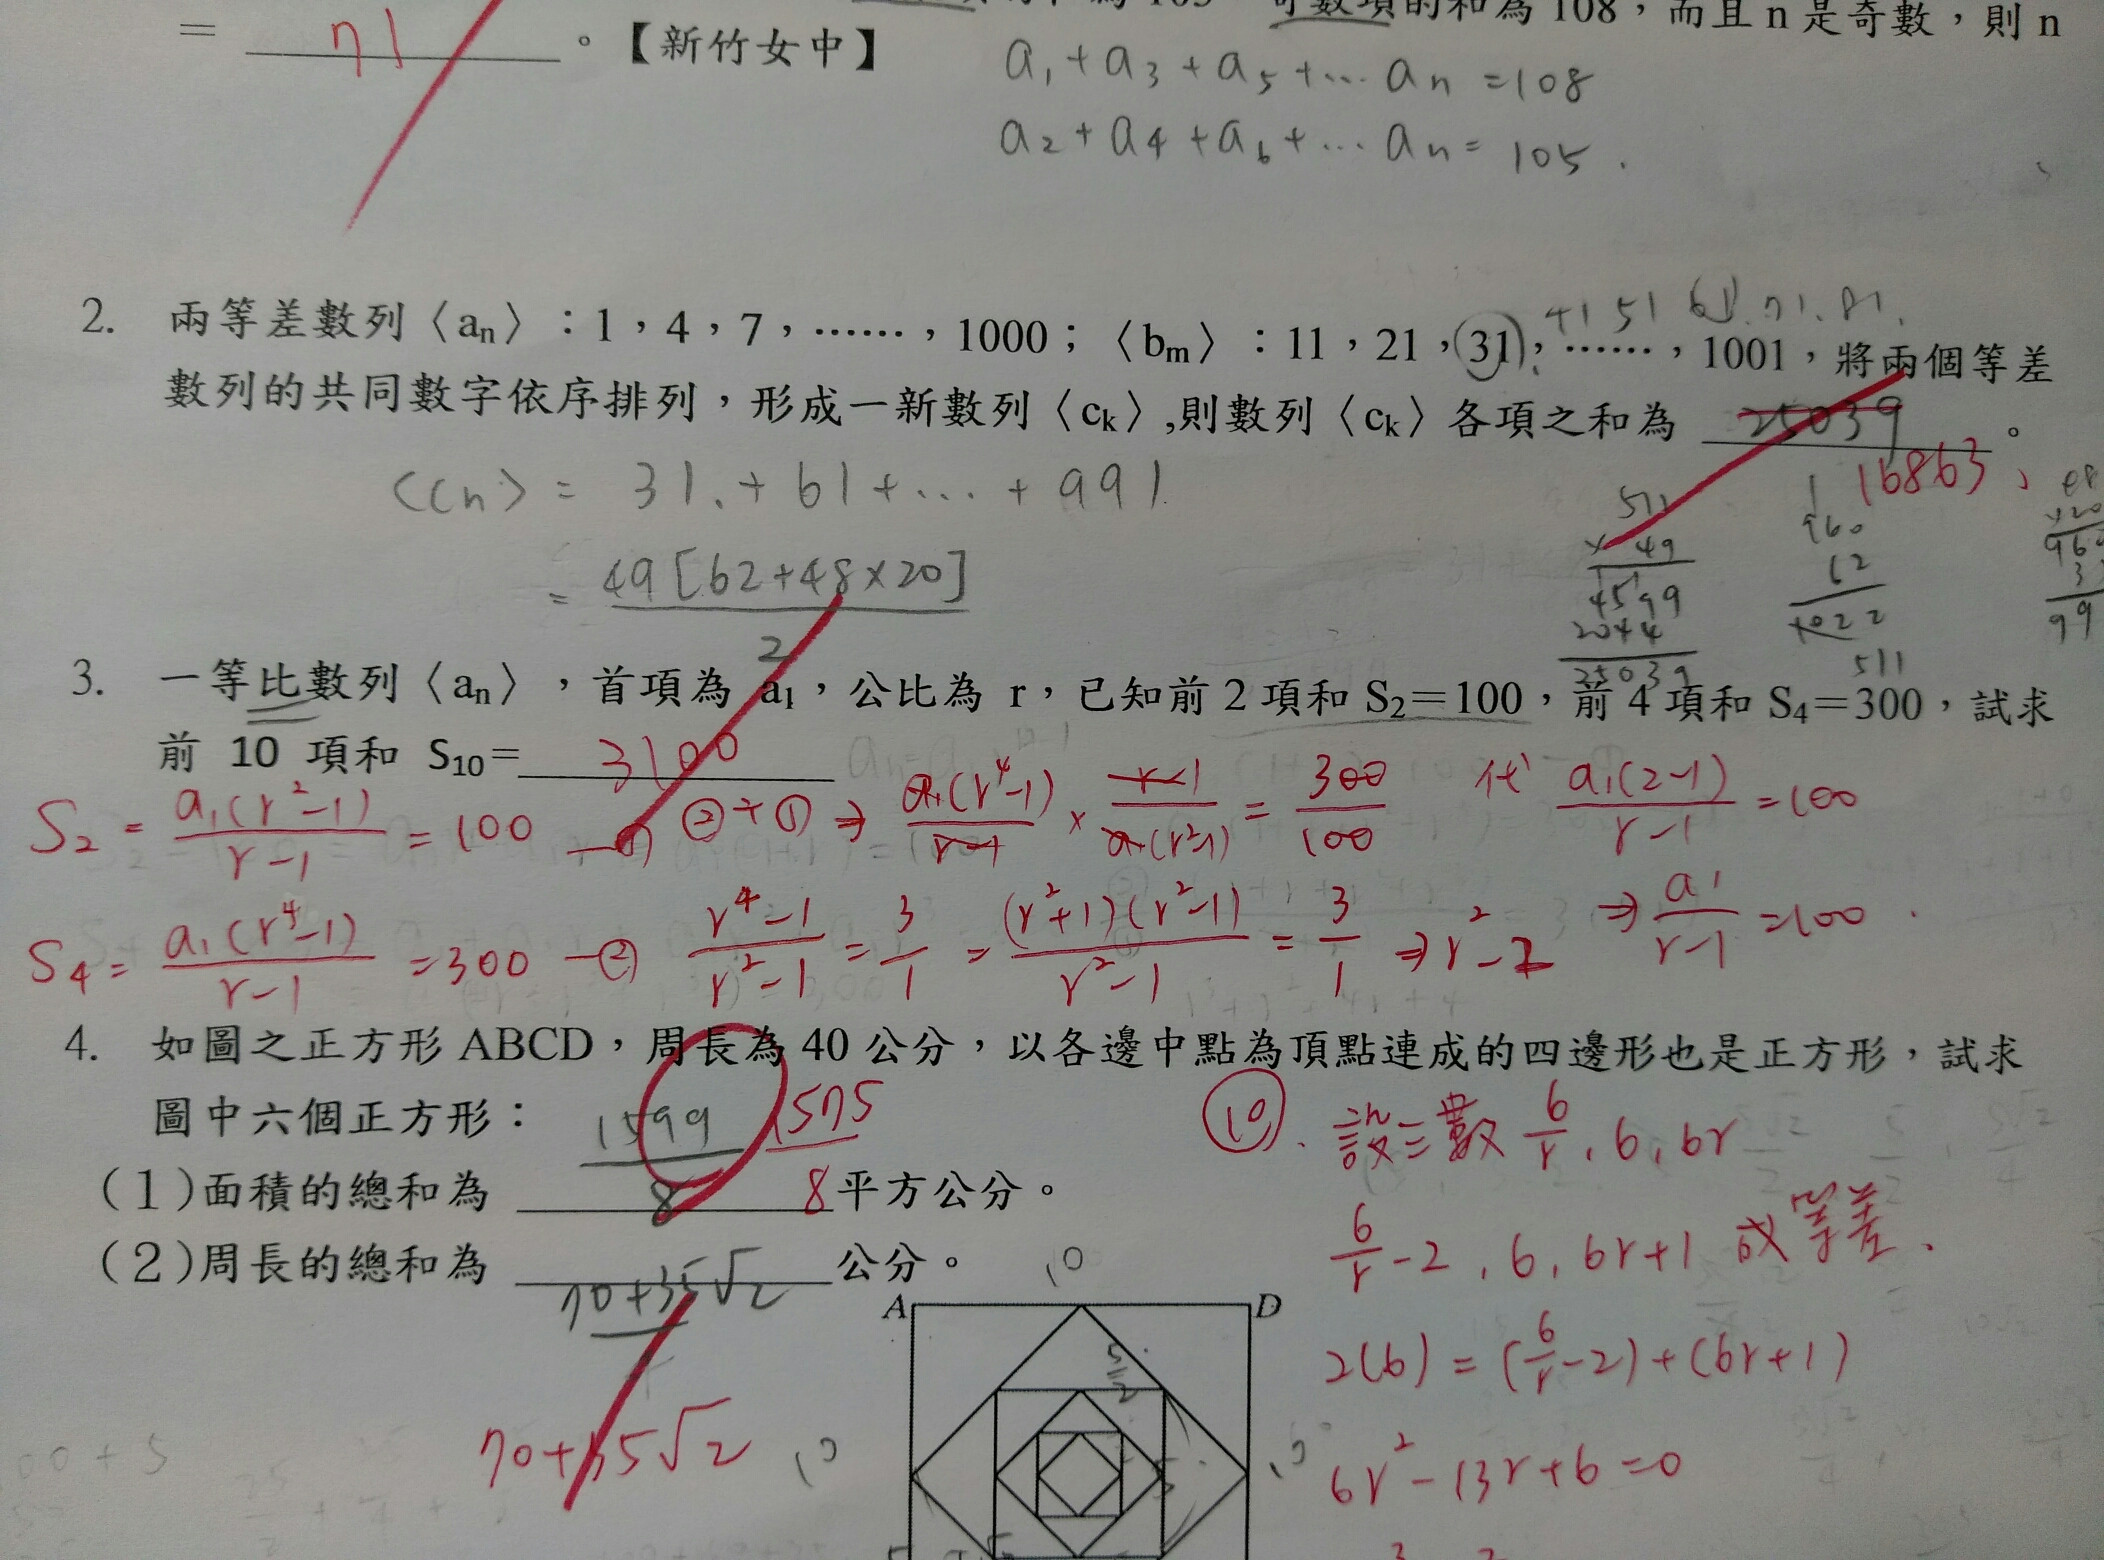 奇數項的和為 108，而且 n 是奇數，則 n
= 71 。【新竹女中】
a₁+a₃+a₅+… aₙ =108
a₂+a₄+a₆+… aₙ= 105 .
41 51 61. 71. 81.
2. 兩等差數列〈aₙ〉：1，4，7，……，1000；〈bₘ〉：11，21，31，……，1001，將兩個等差
數列的共同數字依序排列，形成一新數列〈cₖ〉,則數列〈cₖ〉各項之和為 25039 。
16863
<cₙ> = 31.+61+…+991
= 49[62+48×20]
2
511
× 49
4599
2044
25039
1
960
62
1022
511
3. 一等比數列〈aₙ〉，首項為 a₁，公比為 r，已知前 2 項和 S₂=100，前 4 項和 S₄=300，試求
前 10 項和 S₁₀= 3100
S₂ = a₁(r²-1)/r-1 = 100 —① ②÷① ⇒ a₁(r⁴-1)/r-1 × r-1/a₁(r²-1) = 300/100 代 a₁(2-1)/r-1 =100
S₄= a₁(r⁴-1)/r-1 =300 —② r⁴-1/r²-1 = 3/1 = (r²+1)(r²-1)/r²-1 = 3/1 ⇒ r²=2 ⇒ a₁/r-1 =100
4. 如圖之正方形 ABCD，周長為 40 公分，以各邊中點為頂點連成的四邊形也是正方形，試求
圖中六個正方形：
(1)面積的總和為 1599/8 1575/8 平方公分。
(2)周長的總和為 70+35√2 公分。
70+35√2
⑩. 設三數 6/r, 6, 6r
6/r-2, 6, 6r+1 成等差.
2(6) = (6/r-2)+(6r+1)
6r²-13r+6=0
10
A D
5/2
10 10
5